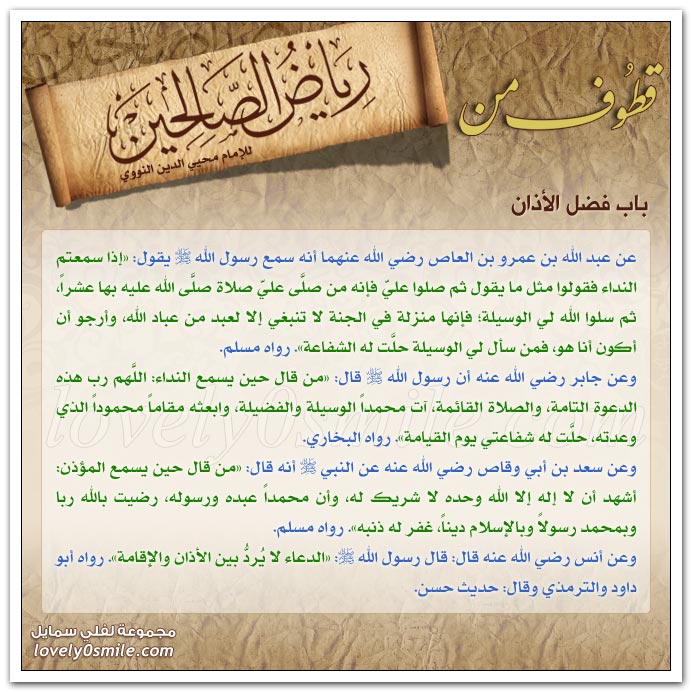 قطوف من
رياض الصالحين
للإمام محيي الدين النووي
باب فضل الأذان
عن عبد الله بن عمرو بن العاص رضي الله عنهما أنه سمع رسول الله ﷺ يقول: «إذا سمعتم
النداء فقولوا مثل ما يقول ثم صلوا عليّ فإنه من صلَّى عليّ صلاة صلَّى الله عليه بها عشراً،
ثم سلوا الله لي الوسيلة؛ فإنها منزلة في الجنة لا تنبغي إلا لعبد من عباد الله، وأرجو أن
أكون أنا هو، فمن سأل لي الوسيلة حلَّت له الشفاعة». رواه مسلم.
وعن جابر رضي الله عنه أن رسول الله ﷺ قال: «من قال حين يسمع النداء: اللَّهم رب هذه
الدعوة التامة، والصلاة القائمة، آت محمداً الوسيلة والفضيلة، وابعثه مقاماً محموداً الذي
وعدته، حلَّت له شفاعتي يوم القيامة». رواه البخاري.
وعن سعد بن أبي وقاص رضي الله عنه عن النبي ﷺ أنه قال: «من قال حين يسمع المؤذن:
أشهد أن لا إله إلا الله وحده لا شريك له، وأن محمداً عبده ورسوله، رضيت بالله ربا
وبمحمد رسولاً وبالإسلام ديناً، غفر له ذنبه». رواه مسلم.
وعن أنس رضي الله عنه قال: قال رسول الله ﷺ: «الدعاء لا يُردُّ بين الأذان والإقامة». رواه أبو
داود والترمذي وقال: حديث حسن.
lovely0smile.com
مجموعة لفلي سمايل
lovely0smile.com